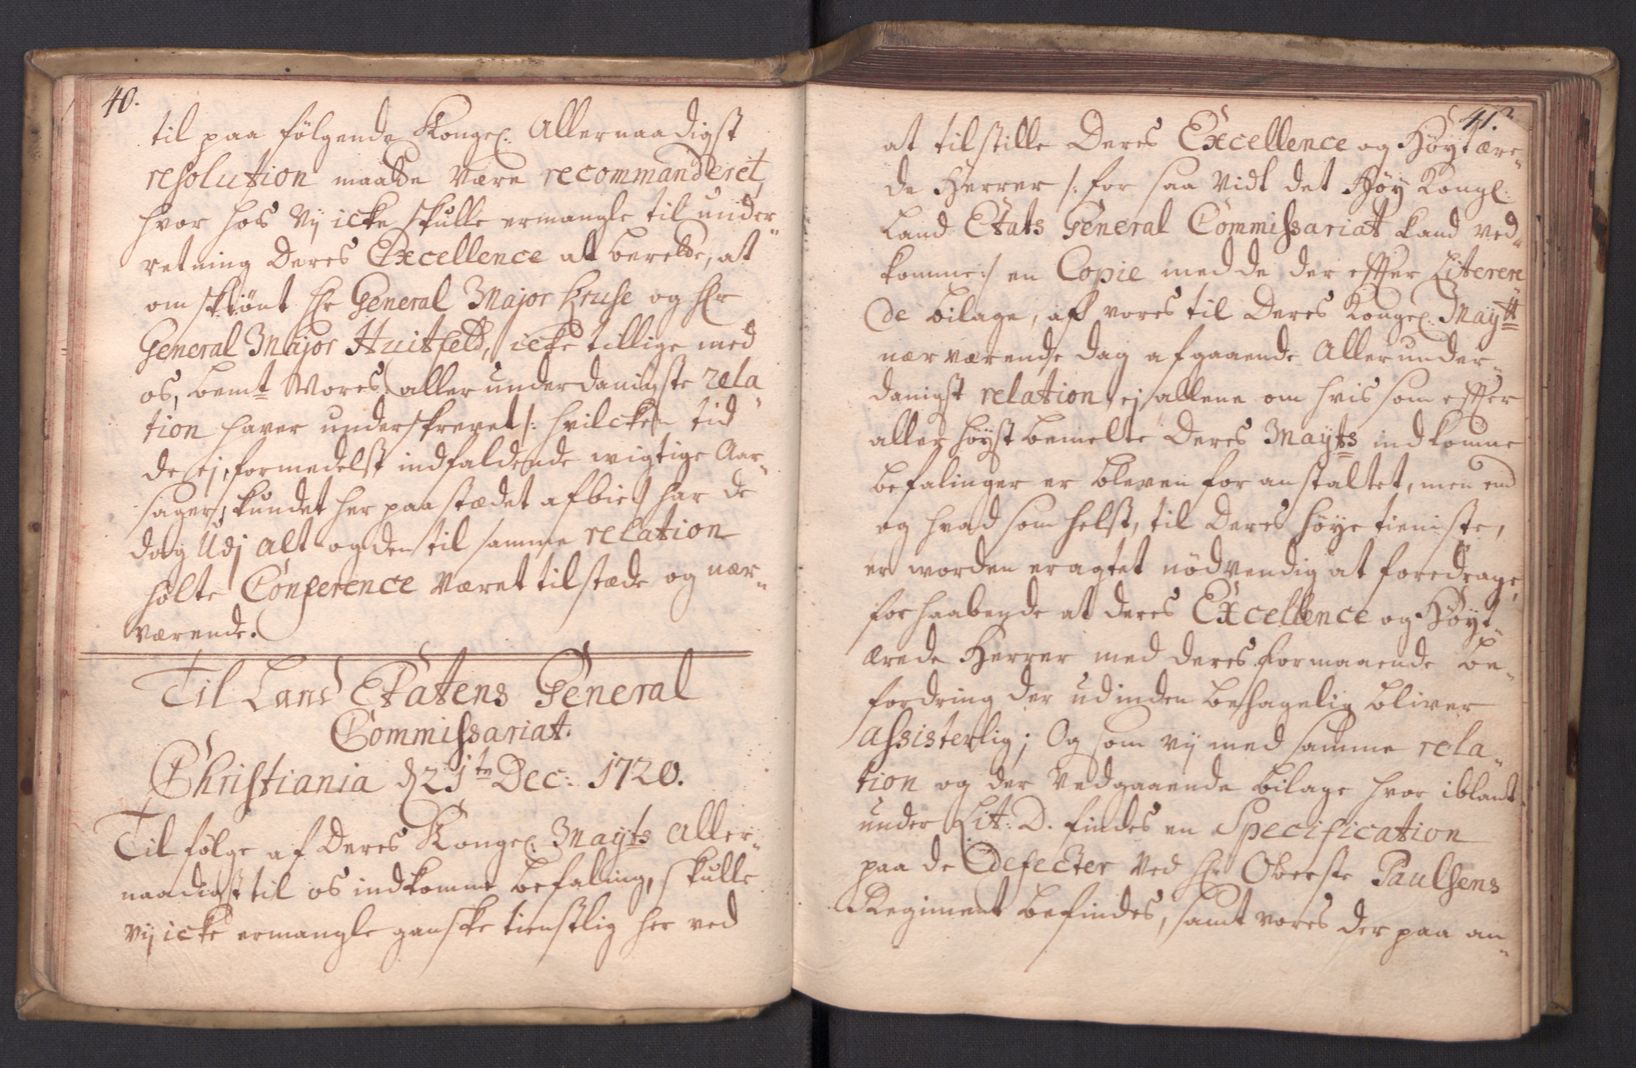 40.
til paa følgende Kongel. Allernaadigst
resolution maatte være recommanderet,
hvor hos Vij icke skulle ermangle til under-
retning Deres Excellence at berette, at
omskiønt Hr General Major Kruse og Hr
General Major Huitfeld, icke tillige med
os, bemt Wores allerunderdanigste rela-
tion haver underskrevet /: hvilcken tid
de ej, formedelst indfaldende wigtige Aar-
sager, kundet her paa stædet afbie:/ har de
dog Udj alt og den til samme relation
holte Conference været tilstæde og nær-
værende.
Til Land Etatens General
Commissariat.
Christiania d 21te Dec: 1720.
Til følge af Deres Kongel. Mayts Aller-
naadigst til os indkomne befaling, skulle
vij icke ermangle ganske tienstlig her ved
41.
at tilstille Deres Excellence og Høytære-
de Herrer /: for saa vidt det Høy Kongl.
Land Etats General Commissariat kand ved-
komme :/ en Copie med de der effter Literere-
de bilage, af vores til Deres Kongel. Maytt
nærværende dag afgaaende Allerunder-
danigst relation, ej allene om hvis som effter
allerhøystbemelte Deres Mayts indkomne
befalinger er bleven foranstaltet, men end
og hvad som helst, til Deres høye tieniste,
er worden eragtet nödvendig at foredrage,
forhaabende at deres Excellence og Høyt-
ærede Herrer med deres formaaende be-
fordring der udinden behagelig bliver
assisterlig; Og som vij med samme rela-
tion og der vedgaaende bilage hvor iblant
under Lit: D. findes en Specification
paa de Defecter ved Hr Oberste Paulsens
Regiment befindes, samt vores der paa an-